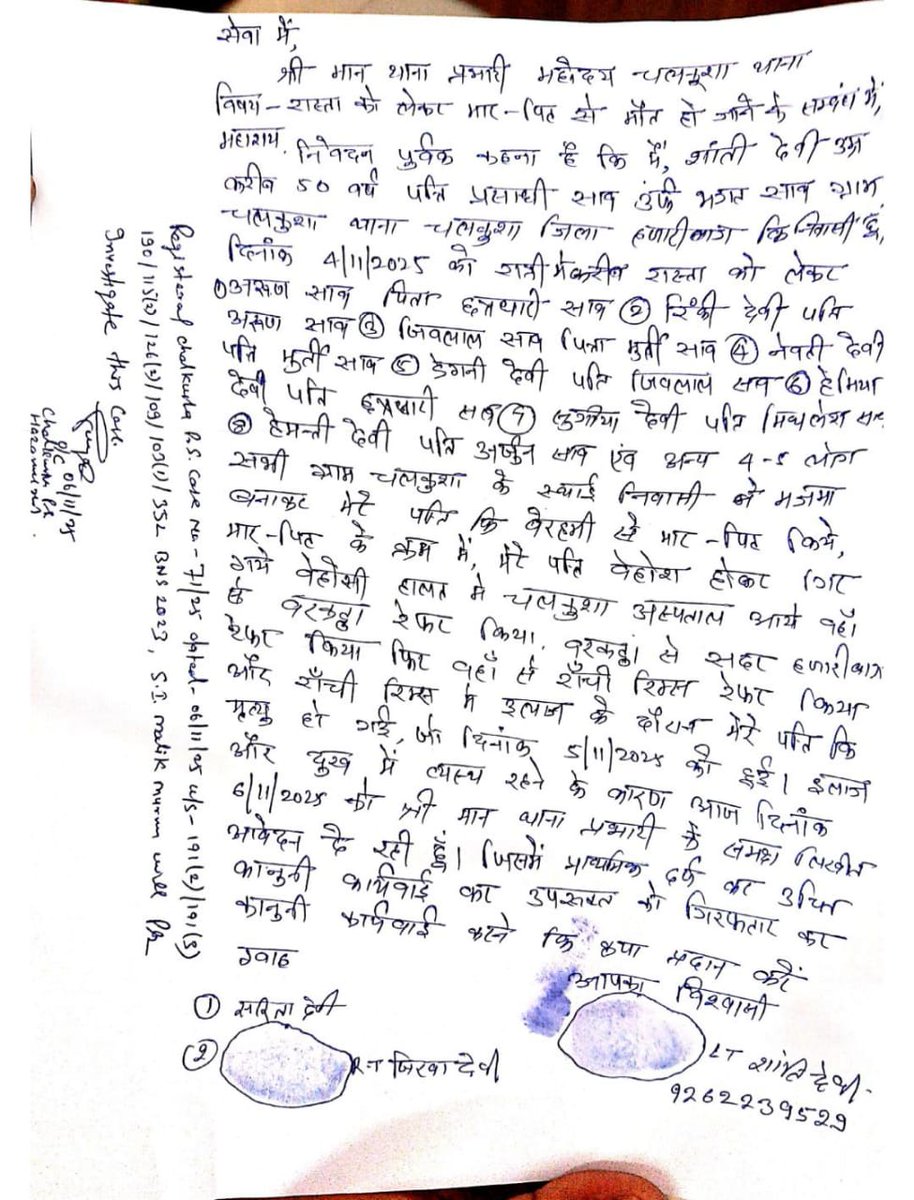 सेवा में,
श्री मान थाना प्रभारी महोदय चलकुशा थाना
विषय - रास्ता को लेकर मार-पिट से मौत हो जाने के सम्बंध में,
महाशय,
निवेदन पूर्वक कहना है कि मैं, शांती देवी उम्र
करीब 50 वर्ष पति प्रसाधी साव उर्फ भगत साव ग्राम
चलकुशा थाना चलकुशा जिला हजारीबाग कि निवासी हूँ,
दिनांक 4/11/2025 को रात्री मे करीब रास्ता को लेकर
① अरूण साव पिता छत्रधारी साव ② रिंकी देवी पति
अरूण साव ③ जिवलाल साव पिता मुर्ती साव ④ नेवती देवी
पति मुर्ती साव ⑤ डेगनी देवी पति जिवलाल साव ⑥ हेमिया
देवी पति छत्रधारी साव ⑦ देवी पति मिथलेश साव
⑧ हेमन्ती देवी पति अर्जुन साव एंव अन्य 4-5 लोग
सभी ग्राम चलकुशा के स्थाई निवासी ने मजमा
बनाकर मेरे पति कि बेरहमी से मार-पिट किये,
मार-पिट के क्रम में, मेरे पति बेहोश होकर गिर
गये बेहोसी हालत मे चलकुशा अस्पताल आये वहाँ
से बरकट्ठा रेफर किया, बरकट्ठा से सदर हजारीबाग
रेफर किया फिर वहाँ से राँची रिम्स रेफर किया
और राँची रिम्स मे इलाज के दौरान मेरे पति कि
मृत्यु हो गई, जो दिनांक 5/11/2025 को हुई। इलाज
और दुख में व्यस्थ रहने के कारण आज दिनांक
6/11/2025 को श्री मान थाना प्रभारी के समक्ष लिखीत
आवेदन दे रही हूँ। जिसमें प्राथमिक दर्ज कर उचित
कानुनी कार्यवाई कर उपरूक्त को गिरफतार कर
कानुनी कार्यवाई करने कि कृपा प्रदान करें
गवाह
आपका विश्वासी
① सरिता देवी
② RT जिरवा देवी
LT शांति देवी
9262239529
Registered chalkusha P.S. Case No - 71/25 dated - 06/11/25 u/s - 191(2)/191(3)
190/115(2)/126(2)/109/103(1)/352 BNS 2023, S.I. malik murmu will Plz
Investigate this Case.
06/11/25
O/C
Chalkusha P.S.
Hazaribagh.